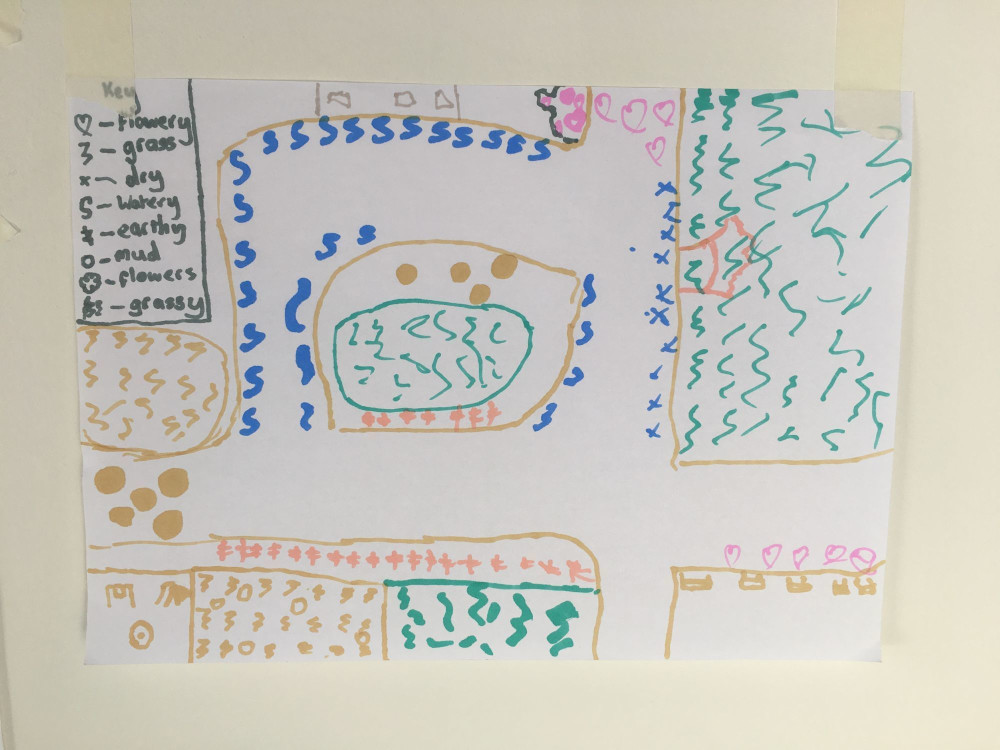 Key
♡ - flowery
ξ - grass
x - dry
S - watery
ǂ - earthy
o - mud
- flowers
- grassy